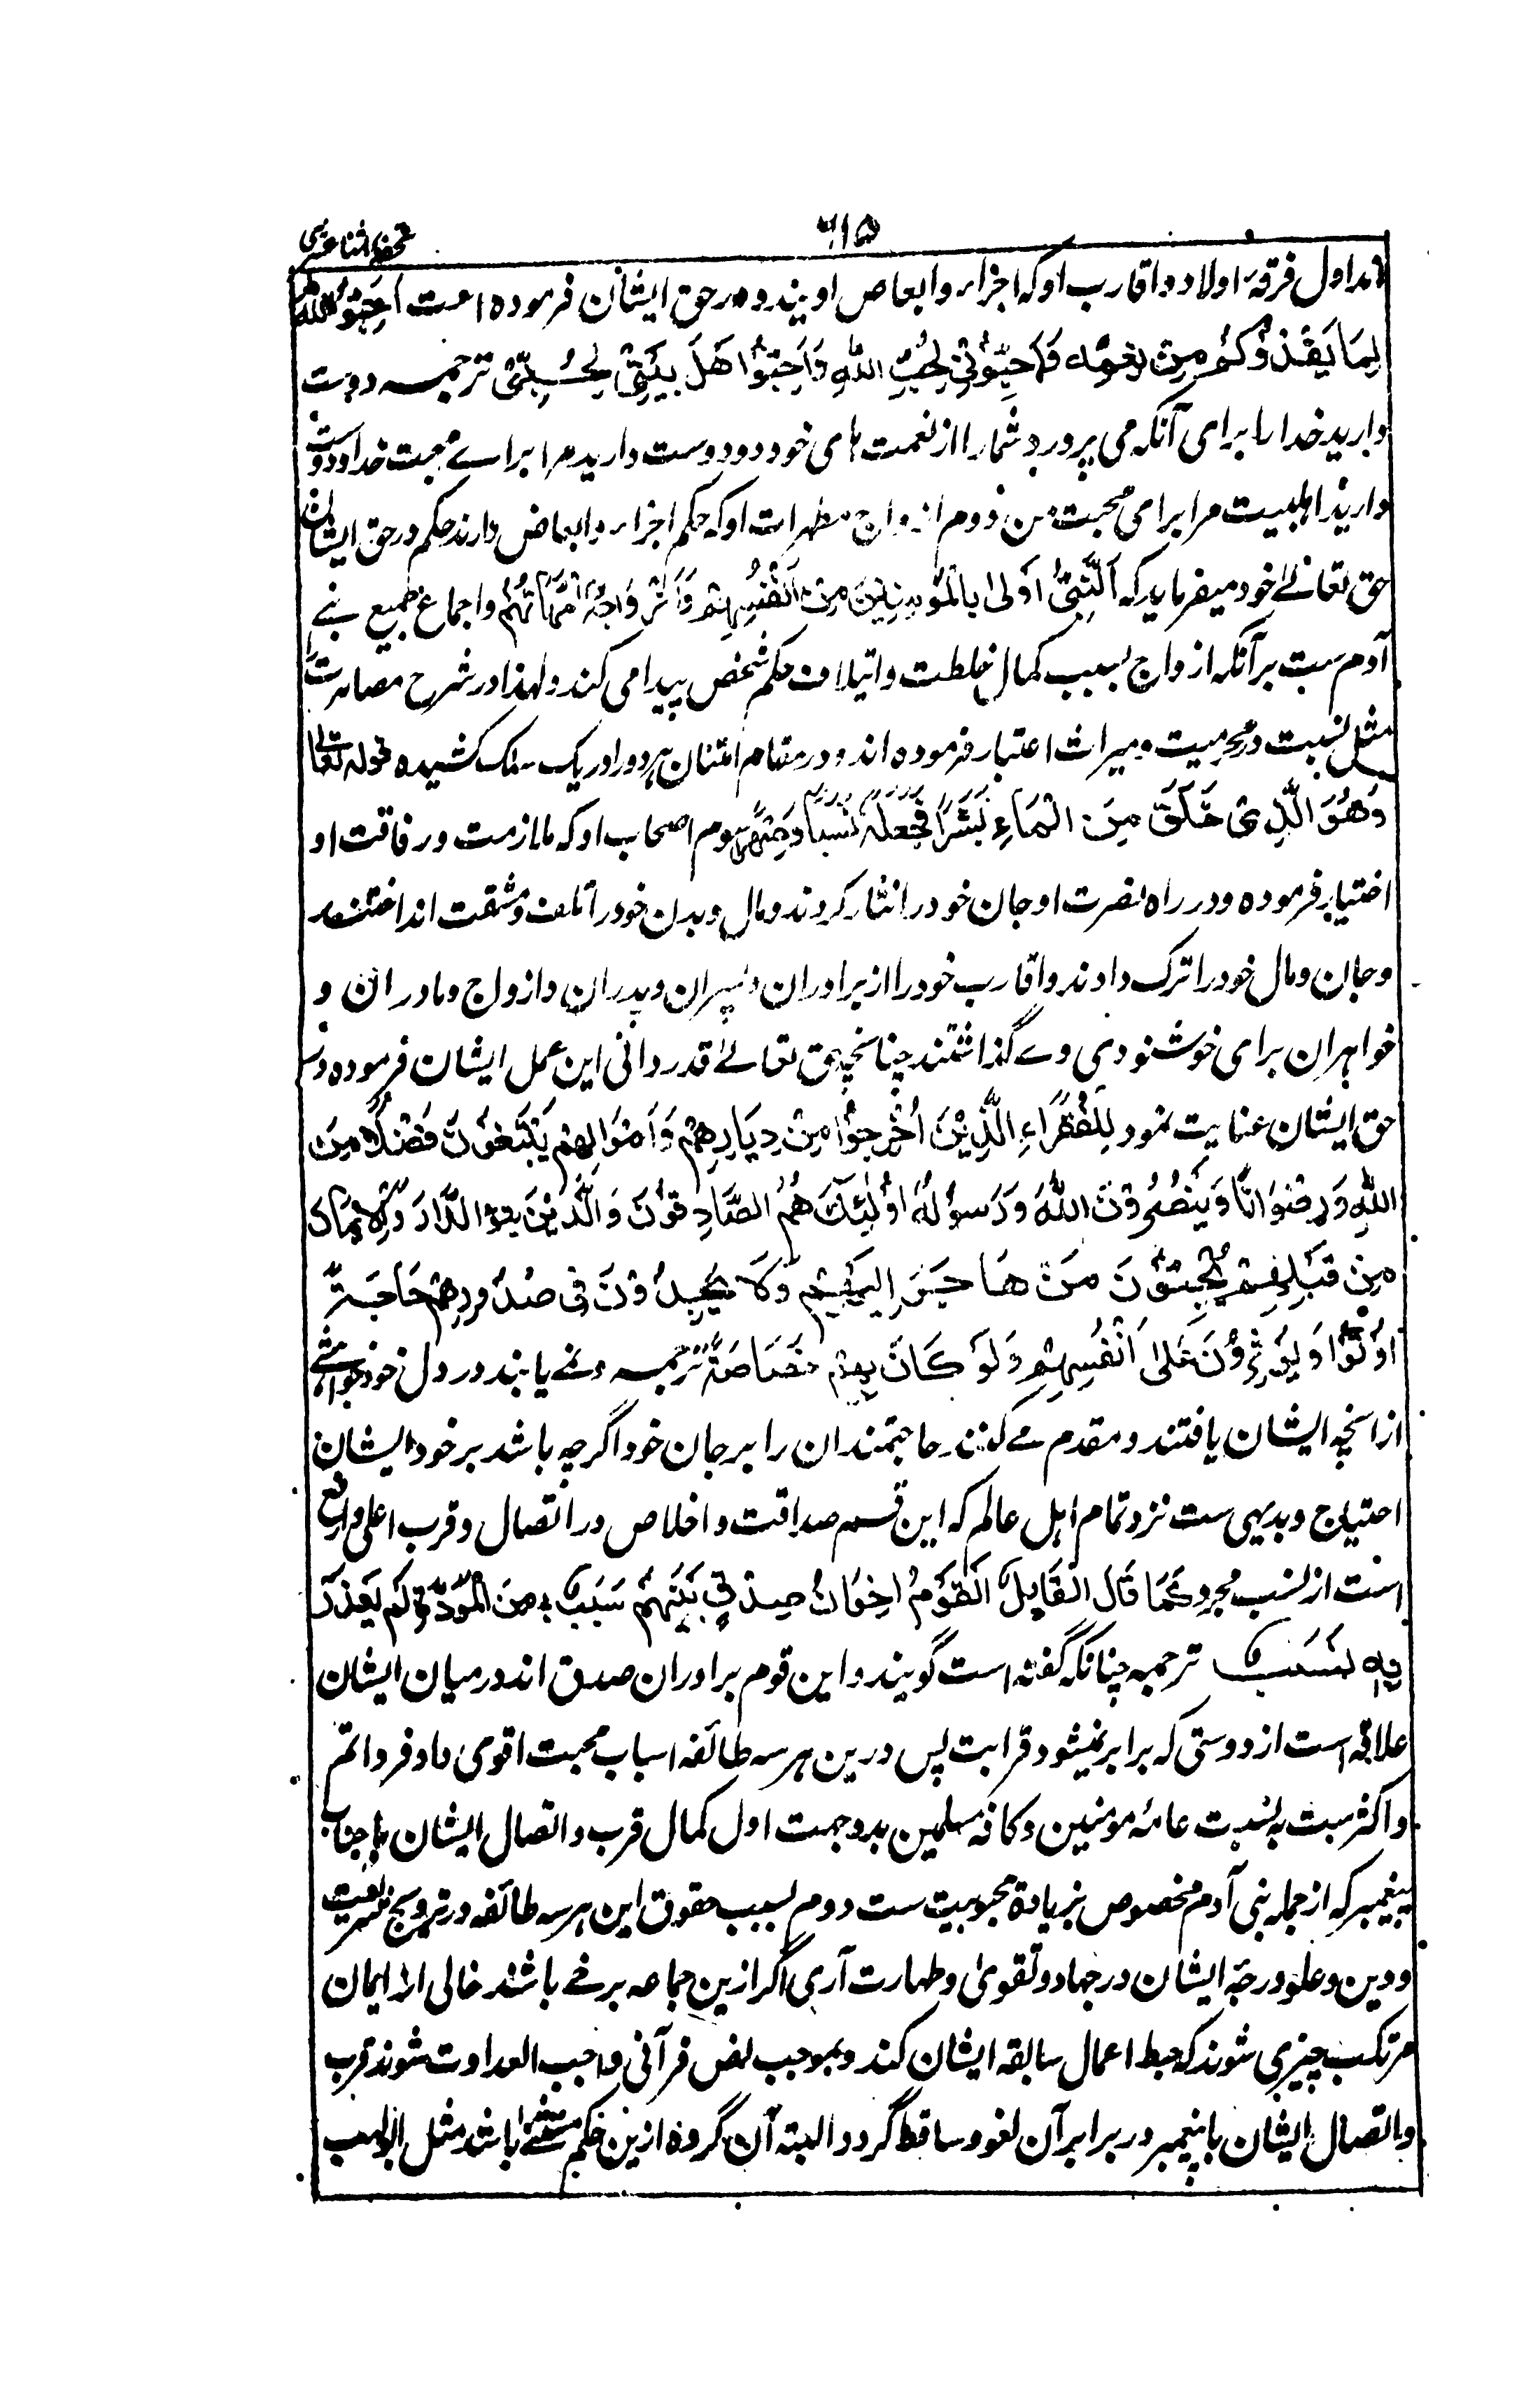 تحفهٔ اثنا عشری
۶۱۵
اند اول فرقهٔ اولاد و اقارب او که اجزاء و ابعاض اویند و در حق ایشان فرموده است اَحِبُّوا اللّٰهَ
لِمَا یَغْذُوْکُمْ مِنْ نِعَمِهِ فَاَحِبُّوْنِیْ لِحُبِّ اللّٰهِ وَاَحِبُّوْا اَهْلَ بَیْتِیْ لِحُبِّیْ ترجمه دوست
دارید خدا را برای آنکه می پرورد شما را از نعمت های خود و دوست دارید مرا برای محبت خدا و دوست
دارید اهلبیت مرا برای محبت من دوم ازواج مطهرات او که حکم اجزاء و ابعاض دارند حکم در حق ایشان
حق تعالےٰ خود میفرماید که اَلنَّبِیُّ اَوْلیٰ بِالْمُؤْمِنِیْنَ مِنْ اَنْفُسِهِمْ وَاَزْوَاجُهُ اُمَّهَاتُهُمْ و اجماع جمیع بنے
آدم ست بر آنکه ازواج بسبب کمال خلطت و ایتلاف حکم شخص پیدا می کند و لهذا در شرع مصاهرت
مثل نسبت در محرمیت و میراث اعتبار فرموده اند و در مقام امتنان هر دو را در یک سلک کشیده قوله تعالیٰ
وَهُوَ الَّذِیْ خَلَقَ مِنَ الْمَاءِ بَشَرًا فَجَعَلَهُ نَسَبًا وَصِهْرًا سوم اصحاب او که ملازمت و رفاقت او
اختیار فرموده و در راه نصرت او جان خود را نثار کردند و مال و بدن خود را تلف و مشقت انداختند
و جان و مال خود را ترک دادند و اقارب خود را از برادران و پسران و پدران و ازواج و مادران و
خواهران برای خوشنودی وے گذاشتند چنانچه حق تعالےٰ قدردانی این عمل ایشان فرموده در
حق ایشان عنایت نمود لِلْفُقَرَاءِ الَّذِیْنَ اُخْرِجُوْا مِنْ دِیَارِهِمْ وَاَمْوَالِهِمْ یَبْتَغُوْنَ فَضْلًا مِنَ
اللّٰهِ وَرِضْوَانًا وَیَنْصُرُوْنَ اللّٰهَ وَرَسُوْلَهُ اُولٰئِكَ هُمُ الصَّادِقُوْنَ وَالَّذِیْنَ تَبَوَّؤُ الدَّارَ وَالْاِیْمَانَ
مِنْ قَبْلِهِمْ یُحِبُّوْنَ مَنْ هَاجَرَ اِلَیْهِمْ وَلَا یَجِدُوْنَ فِیْ صُدُوْرِهِمْ حَاجَةً
اُوْتُوْا وَیُؤْثِرُوْنَ عَلیٰ اَنْفُسِهِمْ وَلَوْ کَانَ بِهِمْ خَصَاصَةٌ ترجمه و نے یابند در دل خود خواهشے
از آنچه ایشان یافتند و مقدم مے کنند حاجتمندان را بر جان خود اگرچه باشد بر خود ایشان
احتیاج و بدیهی ست نزد تمام اهل عالم که این قسم صداقت و اخلاص در اتصال و قرب اعلی و ارفع
است از نسب مجرد کَمَا قَالَ الْقَایِلُ اَلْقَوْمُ اِخْوَانُ صِدْقٍ بَیْنَهُمْ سَبَبٌ ٭ مِنَ الْمَوَدَّةِ لَمْ یُعْدَلْ
بِهِ نَسَبٌ ترجمه چنانکه گفته است گوینده این قوم برادران صدق اند در میان ایشان
علاقه است از دوستی که برابر نمیشود قرابت پس درین هر سه طائفه اسباب محبت اقوی و اوفر و اتم
و اکثر ست به نسبت عامهٔ مومنین و کافهٔ مسلمین بدو جهت اول کمال قرب و اتصال ایشان با جناب
پیغمبر که از جمله بنی آدم مخصوص بزیادة محبوبیت ست دوم بسبب حقوق این هر سه طائفه در ترویج شریعت
و دین و علو درجهٔ ایشان در جهاد و تقوی و طهارت آری اگر ازین جماعه برخے باشند خالی از ایمان
مرتکب چیزی شوند که حبط اعمال سابقه ایشان کند و بموجب نص قرآنی واجب العداوت شوند قرب
و اتصال ایشان با پیغمبر در برابر آن لغو و ساقط گردد البته آن گروه ازین حکم مستثنےٰ باشد مثل ابولهب